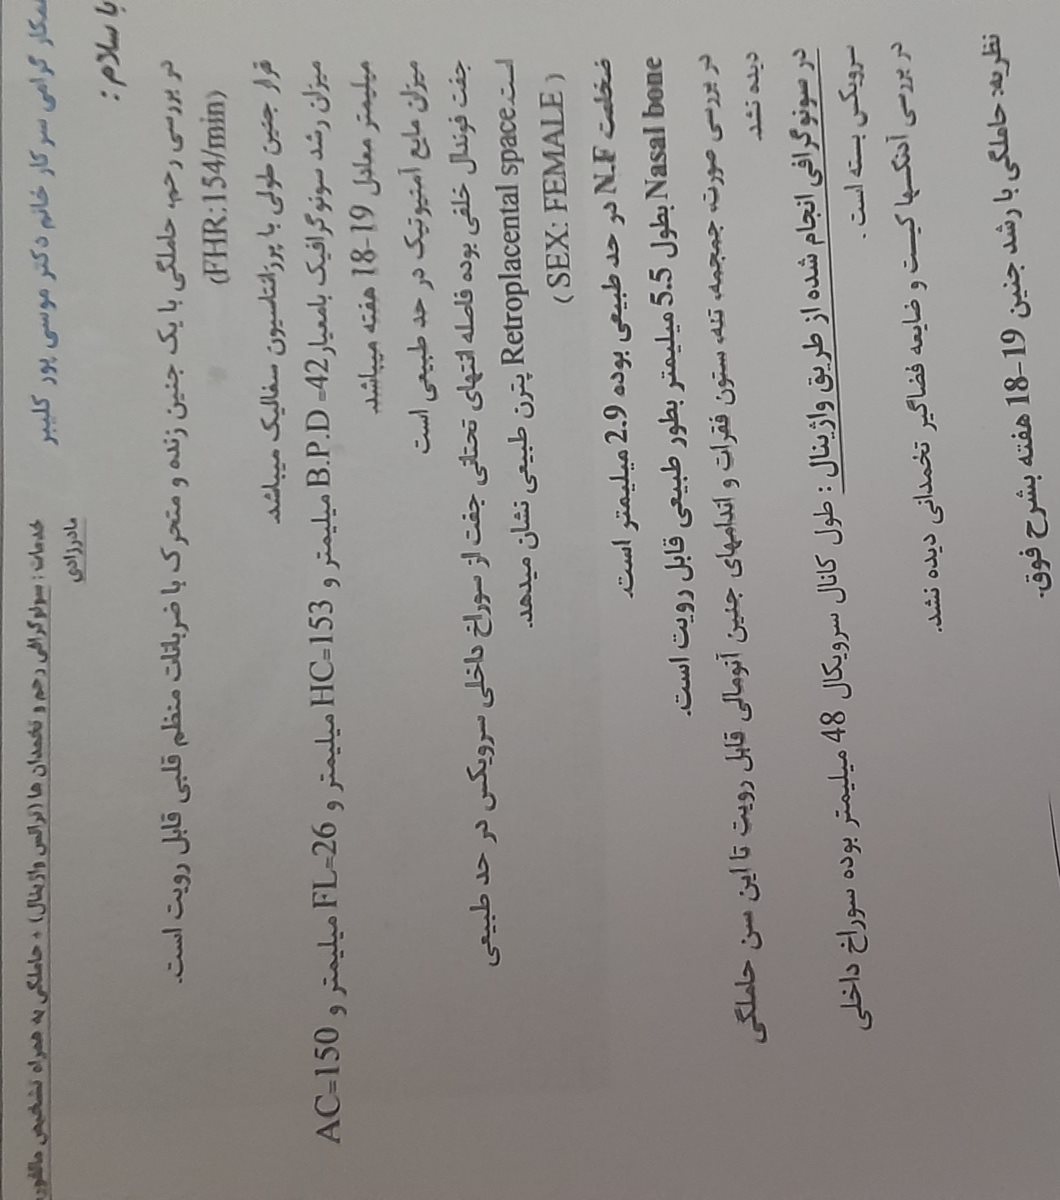 همکار گرامی سرکار خانم دکتر موسی پور کلیبر
خدمات : سونوگرافی رحم و تخمدان ها (ترانس واژینال) ، حاملگی به همراه تشخیص مالفورماسیون
مادرزادی
با سلام :
در بررسی رحم، حاملگی با یک جنین زنده و متحرک با ضربانات منظم قلبی قابل رویت است.
(FHR:154/min)
قرار جنین طولی با پرزانتاسیون سفالیک میباشد
میزان رشد سونوگرافیک بامعیار B.P.D =42 میلیمتر و HC=153 میلیمتر و FL=26 میلیمتر و AC=150
میلیمتر معادل 18-19 هفته میباشد.
میزان مایع آمنیوتیک در حد طبیعی است
جفت فوندال خلفی بوده فاصله انتهای تحتانی جفت از سوراخ داخلی سرویکس در حد طبیعی
است.Retroplacental space پترن طبیعی نشان میدهد.
( SEX: FEMALE )
ضخامت N.F در حد طبیعی بوده 2.9 میلیمتر است.
Nasal bone بطول 5.5 میلیمتر بطور طبیعی قابل رویت است.
در بررسی صورت، جمجمه، تنه، ستون فقرات و اندامهای جنین آنومالی قابل رویت تا این سن حاملگی
دیده نشد
در سونوگرافی انجام شده از طریق واژینال : طول کانال سرویکال 48 میلیمتر بوده سوراخ داخلی
سرویکس بسته است .
در بررسی آدنکسها کیست و ضایعه فضاگیر تخمدانی دیده نشد.
نظریه: حاملگی با رشد جنین 19-18 هفته بشرح فوق.